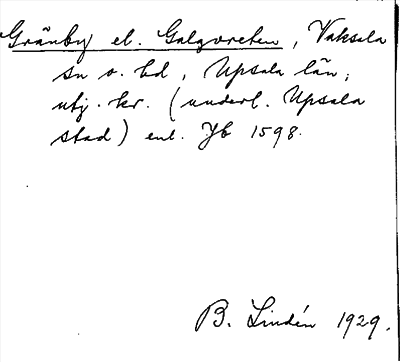 Gränby el. Galgvreten, Vaksala
sn o. hd, Upsala län,
utj. kr. (underl. Upsala
stad) enl. Jb 1598.
B. Lindén 1929.